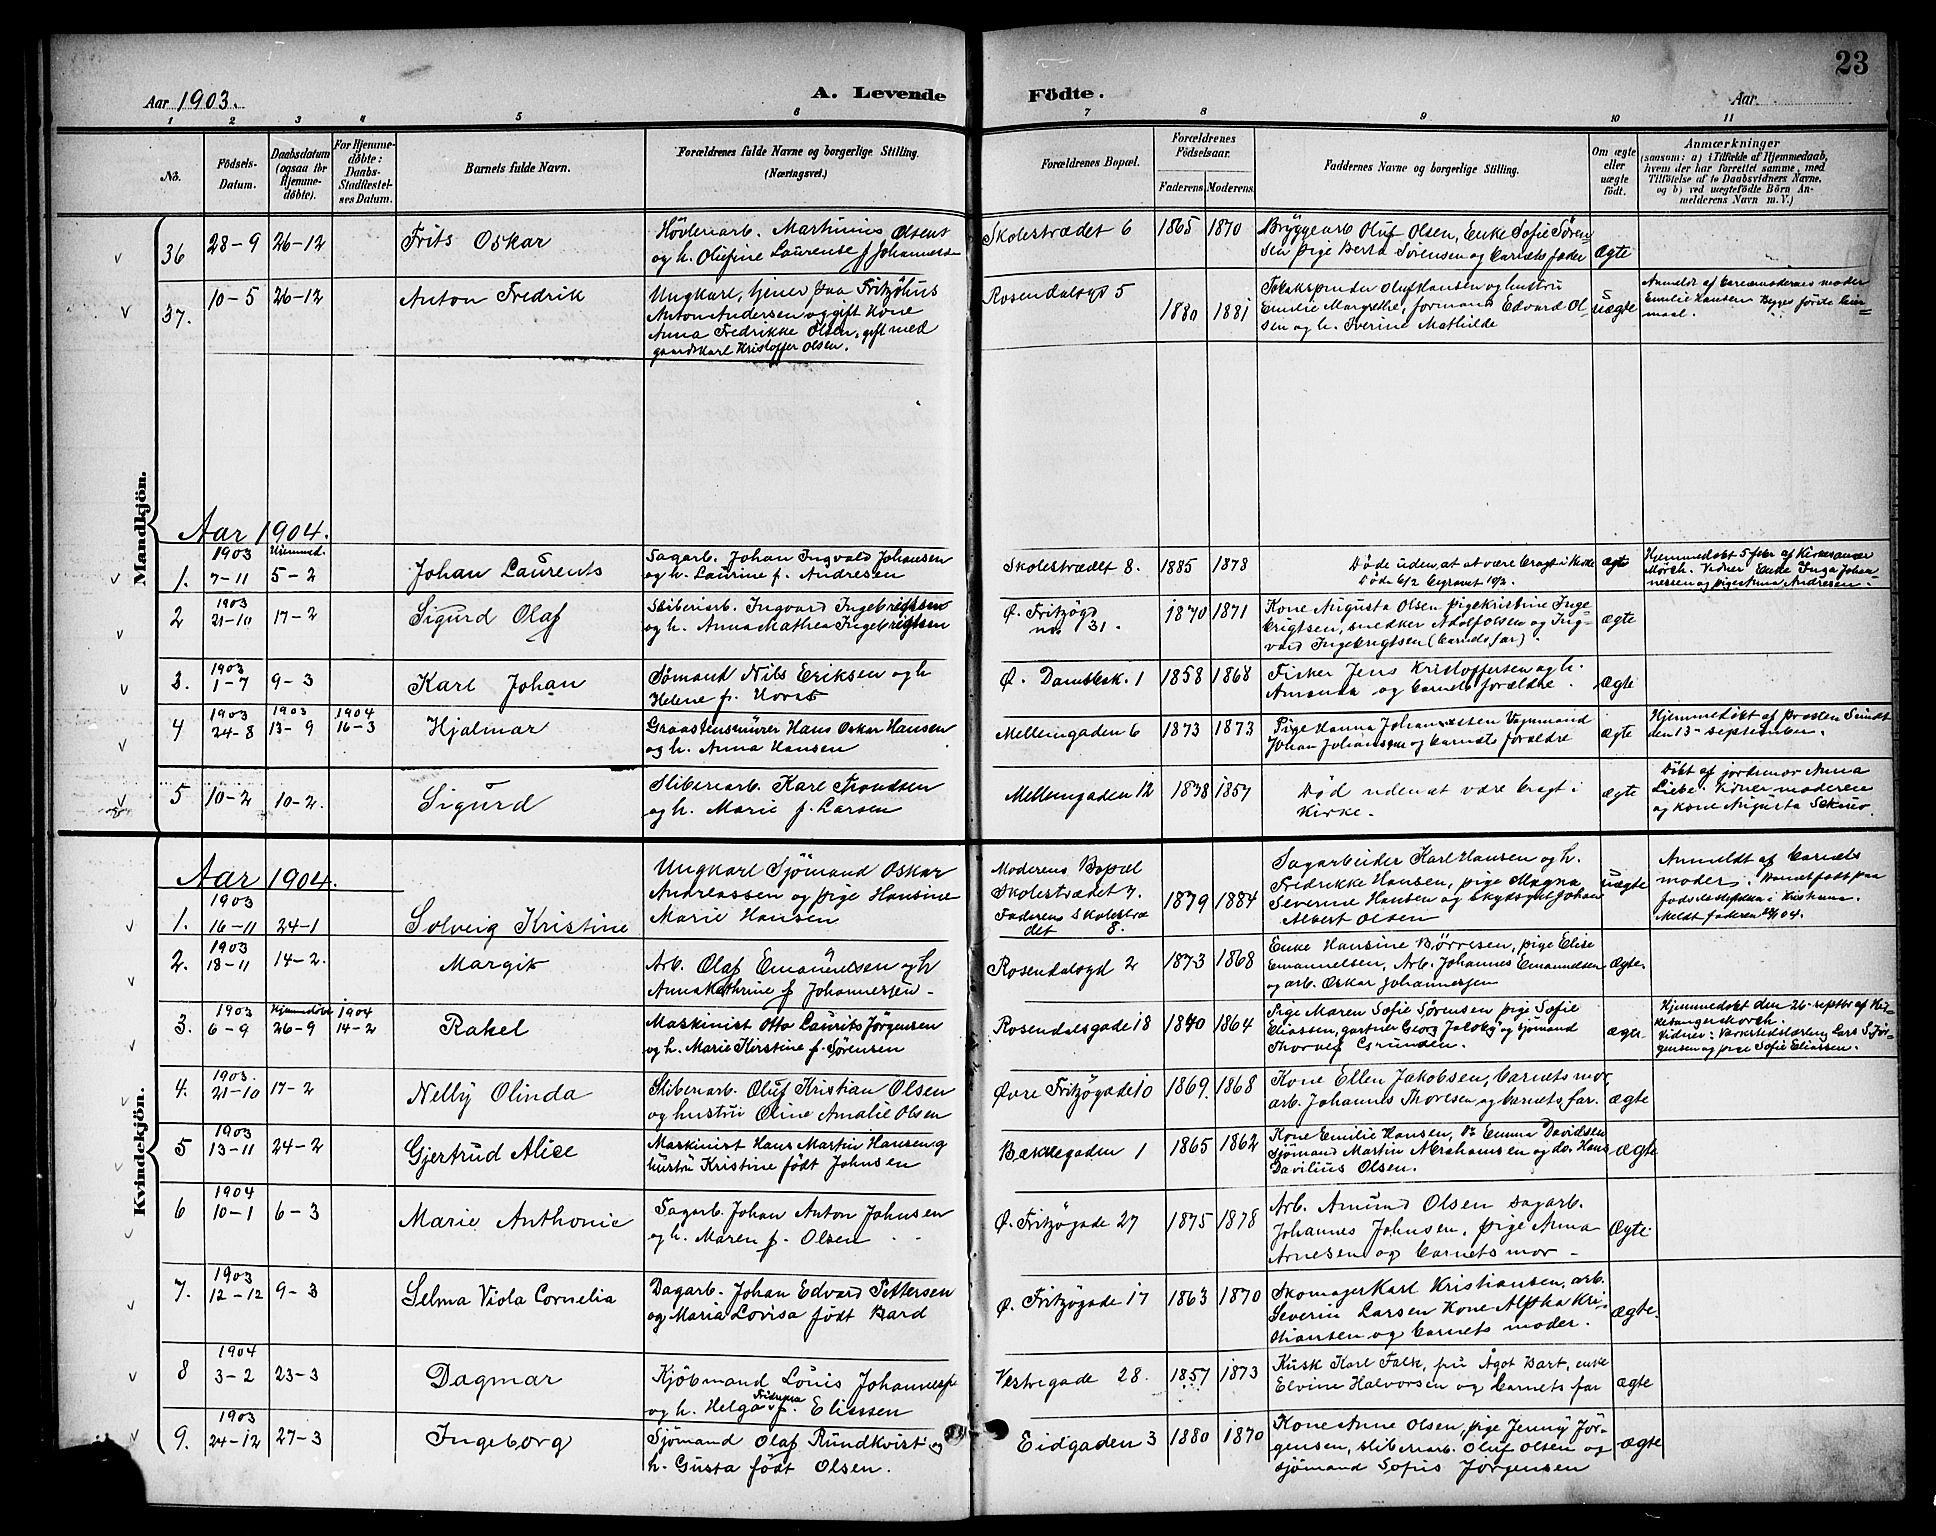 23
Aar 1903.
A. Levende
Födte.
Aar
1 2 3 4 5 6 7 8 9 10 11
No.
Födsels-
Datum.
Daabsdatum
(ogsaa for
Hjemme-
døbte).
For Hjemme-
døbte:
Daabs-
Stadfæstel-
ses Datum.
Barnets fulde Navn.
Forældrenes fulde Navne og borgerlige Stilling.
(Næringsvei.)
Forældrenes Bopæl.
Forældrenes
Födselsaar.
Faderens. Moderens.
Faddernes Navne og borgerlige Stilling.
Om ægte
eller
uægte
født.
Anmærkninger
(saasom: a) i Tilfælde af Hjemmedaab,
hvem der har forrettet samme, med
Tilføielse af to Daabsvidners Navne,
og b) ved uegtefödte Börn An-
melderens Navn m. V.)
Mandkjön.
36 28-9 26-12 Frits Oskar
Høvleriarb. Martinius Olsen
og h. Olufine Laurense f Johannesen
Skolestrædet 6 1865 1870
Bryggearb Oluf Olsen, Enke Sofie Sören-
sen pige Berta Sørensen og barnets fader
ægte
37. 10-5 26-12 Anton Fredrik
Ungkarl, tjener paa Fritzöhus
Anton Andersen og gift Kone
Anna Fredrikke Olsen, gift med
gaardskarl Kristoffer Olsen.
Rosendalsgd 5 1880 1881
Oluf Hansen og hustru
Emilie Margrethe, formand Edvard Ol-
sen og h. Iverine Mathilde
uægte
Anmeldt af barnemoderens moder
Emilie Hansen Begges første leier-
maal.
Aar 1904.
1. 1903 7-11 Hjemmed. 5-2 Johan Laurents
Sagarb. Johan Ingvald Johansen
og h. Laurine f. Andresen
Skolestrædet 8. 1885 1878
Døde uden, at at være bragt i Kirke
Døde 6/2 begravet 10/2.
ægte
Hjemmedøbt 5 febr af Kirkesanger
Mörch. Vidner Enke Inga Johan-
nessen og pige Anna Andresen
2 1903 21-10 17-2 Sigurd Olaf
Sliberiarb. Ingvard Ingebrigtsen
og h. Anna Mathea Ingebrigtsen
Ø. Fritzögd
no. 31. 1870 1871
Kone Augusta Olsen pige Kristine Inge-
brigtsen, snedker Adolf Olsen og Ing-
vard Ingebrigtsen (barnets far).
ægte
3. 1903 1-7 9-3 Karl Johan
Sømand Nils Eriksen og h
Helene f.
Ø. Dambak. 1 1858 1868
Fisker Jens Kristoffersen og h.
Amanda og barnets forældre.
ægte
4 1903 24-8 1903 13-9 1904 16-3 Hjalmar
Graastensmürer Hans Oskar Hansen
og h. Anna Hansen
Mellemgaden 6 1873 1873
Pige Hanna Johannessen Vognmand
Johan Johansen og barnets forældre
ægte
Hjemmedøbt af prosten Sundt
den 13- september.
5 10-2 10-2. Sigurd
Sliberiarb. Karl Trondsen
og h. Marie f. Larsen
Mellemgaden 12 1838 1857
Død uden at være bragt i
Kirke.
ægte
Döbt af jordemor Anna
Liebe. Vidner moderen
og kone Augusta
Kvindekjön.
Aar 1904.
1. 1903 16-11 24-1 Solveig Kristine
Ungkarl Sjömand Oskar
Andreassen og pige Hansine
Marie Hansen
Moderens Bopæl
Skolestrædet 7.
Faderens Skolestræ
det 8. 1879 1884
Sagarbeider Karl Hansen og h.
Fredrikke Hansen, pige Magna
Severine Hansen og skydsgut Johan
Albert Olsen
uægte
Anmeldt af barnets
moder. Barnet født paa
fødselsstiftelsen i Kristiania.
2. 1903 18-11 14-2. Margit
Arb. Olaf Emanuelsen og h
Anna Kathrine f Johannesen
Rosendalsgd 2 1873 1868
Enke Hansine Börresen, pige Elise
Emanuelsen, Arb. Johannes Emanuelsen
og arb. Oskar Johannesen
ægte.
3. 1903 6-9 Hjemmedøbt 26-9 1904 14-2 Rakel
Maskinist Otto Laurits Jörgensen
og h. Marie Kirstine f. Sørensen
Rosendalsgade 18 1840 1864
Pige Maren Sofie Sörensen pige Sofie
Eliassen, gartner Georg Jacoby og sjømand
Thorvef Grunden.
ægte
Hjemmedøbt den 26-septbr af Kir-
kesanger Mørch.
Vidner: Værkstedslærling Lars S. Jör-
gensen og pige Sofie Eliassen.
4. 1903. 21-10 17-2 Nelly Olinda
Sliberiarb. Oluf Kristian Olsen
og hustru Oline Amalie Olsen
Øvre Fritzögade 10 1869. 1868
Kone Ellen Jakobsen, barnets mor,
arb. Johannes Thoresen og barnets far.
ægte
5 1903 13-11 24-2 Gjertrud Alice
Maskinist Hans Martin Hansen og
hustru Kristine födt Johnsen
Bækkegaden 1 1865 1862
Kone Emilie Hansen, do Emma Davidsen
Sjömand Martin Abrahamsen og do. Hans
Davilius Olsen.
ægte
6 1904 10-1 6-3 Marie Anthonie
Sagarb. Johan Anton Johnsen
og h. Maren f. Olsen
Ø. Fritzögade 27 1875 1878
Arb. Amund Olsen sagarb.
Johannes Johnsen, pige Anna
Arnesen og barnets mor -
Ægte
7. 1903 12-12 9-3 Selma Viola Cornelia
Dagarb. Johan Edvard Pettersen
og Maria Lovisa født Bard
Ø. Fritzögade 17 1863 1870
Skomager Karl Kristiansen, arb.
Severin Larsen Kone Alpha Kri-
stiansen og barnets moder.
Ægte
8 1904 3-2 23-3 Dagmar
Kjöbmand Louis Johannesen
og h. Helga Fredrikka f. Eliassen
Vestregade 28. 1857 1873
Kusk Karl Falk, fru Ågot Bart, enke
Elvine Halvorsen og barnets far
ægte
9. 1903 24-12 27-3 Ingeborg
Sjömand Olaf Rundkvist og
h. Gusta född Olsen.
Eidgaden 3 1880 1870
Kone Anne Olsen, pige Jenny Jör-
gensen, sliberiarb. Oluf Olsen og
sjömand Sofus Jörgensen
ægte